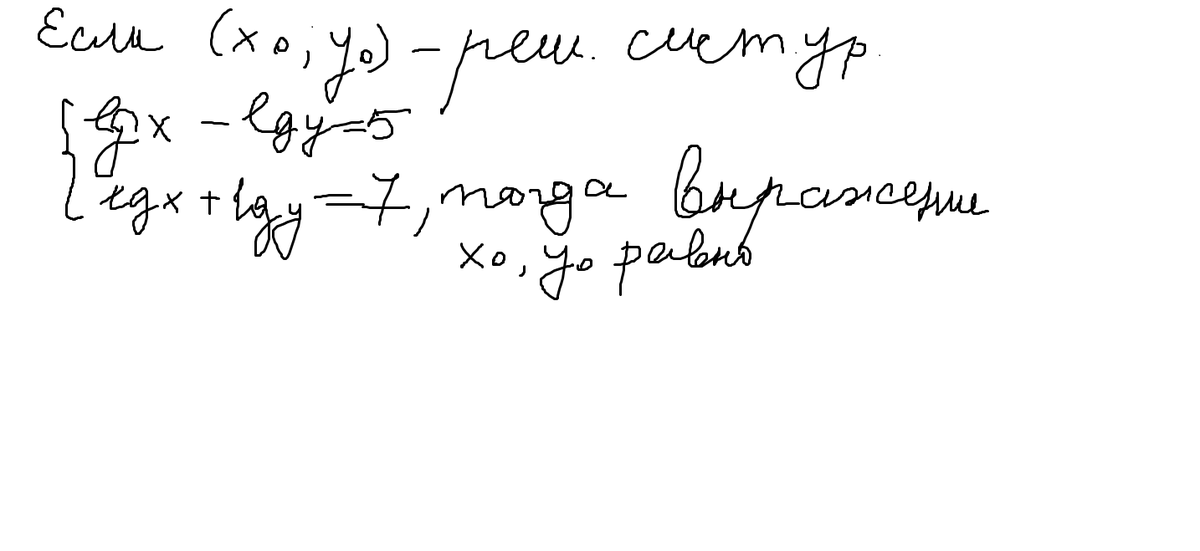 Если (x₀, y₀) – реш. сист. ур.
{ lg x – lg y = 5
lg x + lg y = 7, тогда выражение
x₀, y₀ равно